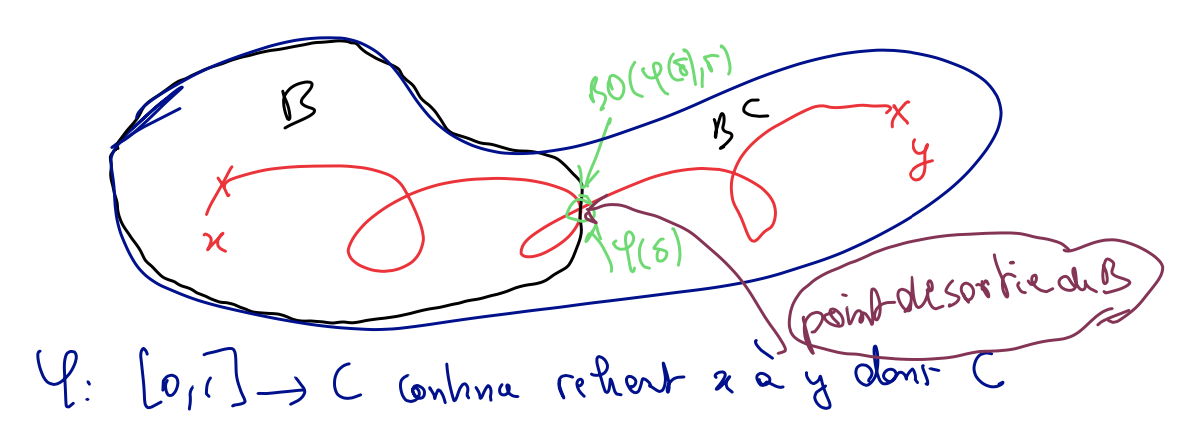 B
BO(φ(δ),r)
B^C
x
y
φ(δ)
point de sortie de B
φ: [0,1] → C continue reliant x à y dans C